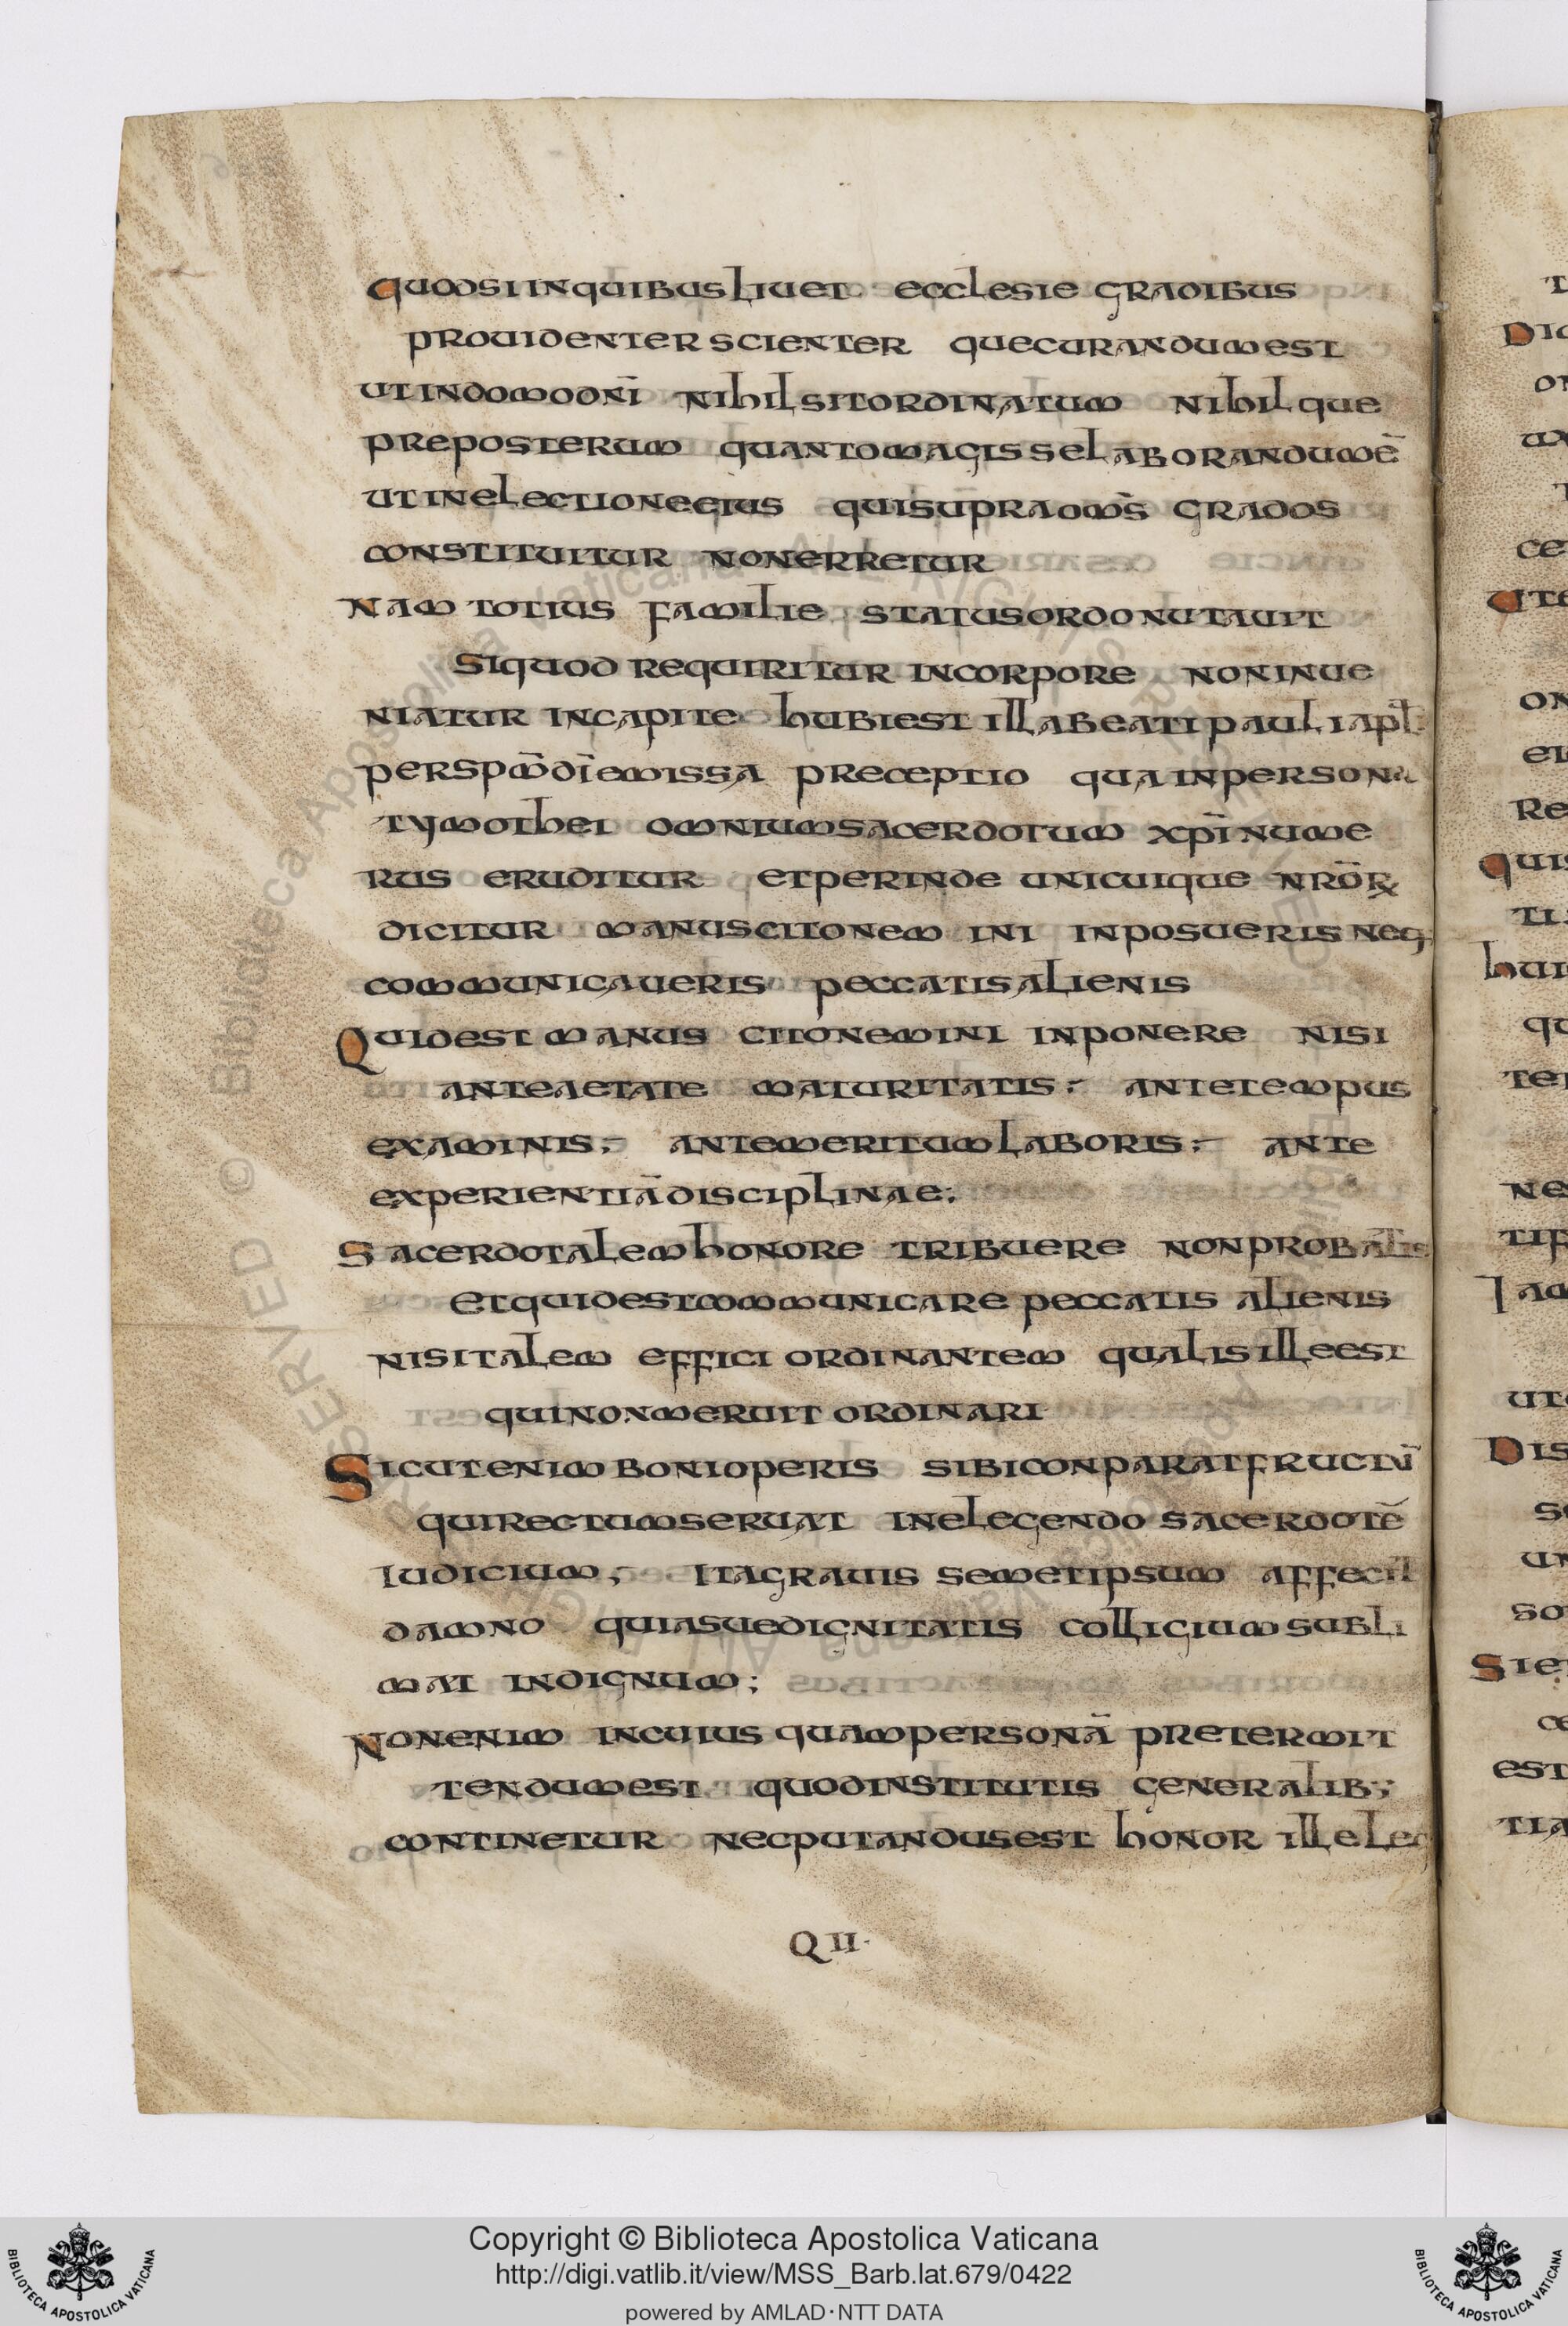 quodsi inquibusliuet ecclesie gradibus
prouidenter scienter quecurandumest
utindomodnī nihilsitordinatum nihilque
preposterum quantomagisselaborandumē
utinelectioneeius quisupraoms̄ grados
constituitur nonerretur
Nam totius familie statusordonutauit
Siquod requiritur incorpore noninue
niatur incapite hubiest illabeatipauliapl
perspm̄dīemissa preceptio quainpersona
tymothei omniumsacerdotum xpīnume
rus eruditur etperinde unicuique nrōꝝ
dicitur manuscitonem ini inposueris neq
communicaueris peccatisalienis
Quidest manus citonemini inponere nisi
anteaetate maturitatis: antetempus
examinis; antemeritumlaboris: ante
experientiādisciplinae;
Sacerdotalemhonore tribuere nonprobatis
Etquidestcommunicare peccatis alienis
nisitalem effici ordinantem qualisilleest
quinonmeruit ordinari
Sicutenimbonioperis sibiconparatfructū
quirectumseruat inelegendo sacerdotē
iudicium; Itagrauis semetipsum affecit
damno quiasuedignitatis colliciumsubli
mat indignum;
Nonenim incuius quampersonā pretermit
tendumest quodinstitutis generalib;
continetur necputandusest honor illeleg
Q II·
T
Dic
on
ux
T
ce
Ute
on
ei
Re
quis
ti
hui
qu
ter
ne
tif
Iam
ut
Dis
se
un
so
Sie
ce
est
tia
Copyright © Biblioteca Apostolica Vaticana
http://digi.vatlib.it/view/MSS_Barb.lat.679/0422
powered by AMLAD·NTT DATA
BIBLIOTECA APOSTOLICA VATICANA
BIBLIOTECA APOSTOLICA VATICANA